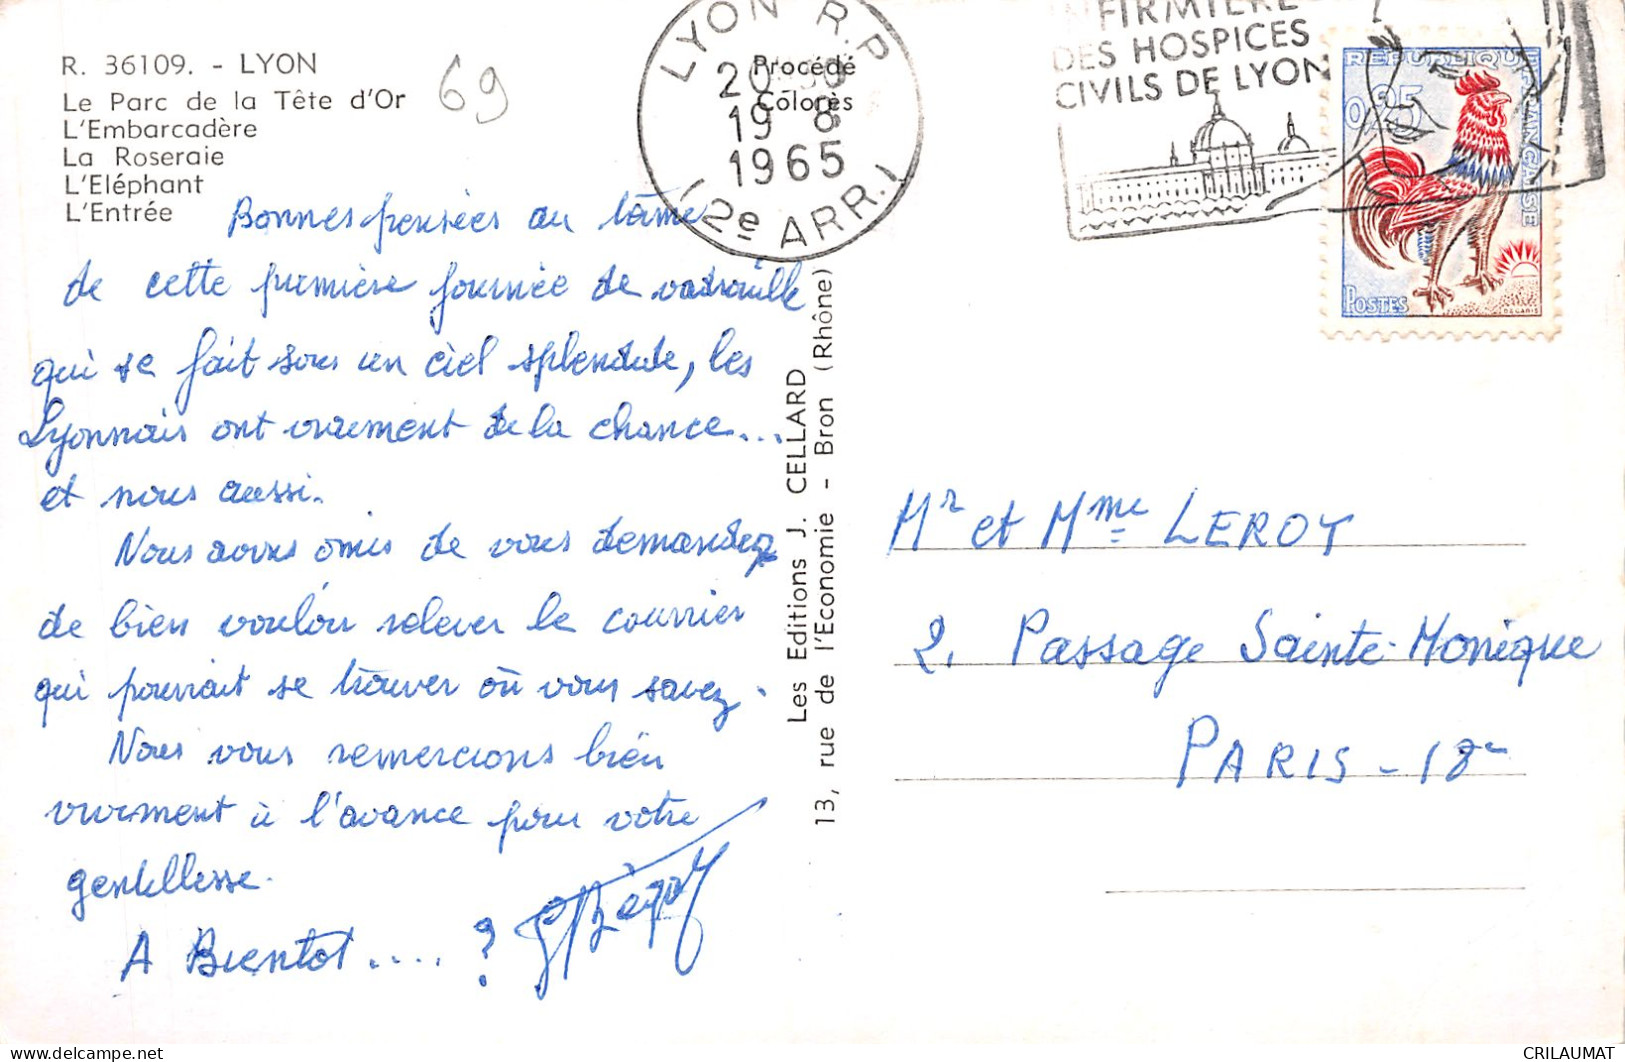 R. 36109. - LYON
Le Parc de la Tête d'Or
L'Embarcadère
La Roseraie
L'Eléphant
L'Entrée
69
Procédé
Colorès
LYON R.P.
20
19 8
1965
(2e ARR.)
INFIRMIERE
DES HOSPICES
CIVILS DE LYON
REPUBLIQUE FRANÇAISE
0,25
POSTES
DECARIS
Bonnes pensées au terme
de cette première journée de vadrouille
qui se fait sous un ciel splendide, les
Lyonnais ont vraiment de la chance...
et nous aussi.
Nous avons omis de vous demander
de bien vouloir relever le courrier
qui pourrait se trouver où vous savez.
Nous vous remercions bien
vivement à l'avance pour votre
gentillesse.
A Bientot .... ?
Les Editions J. CELLARD
13, rue de l'Economie - Bron (Rhône)
Mr et Mme LEROY
2, Passage Sainte-Monique
PARIS - 18e
CRILAUMAT